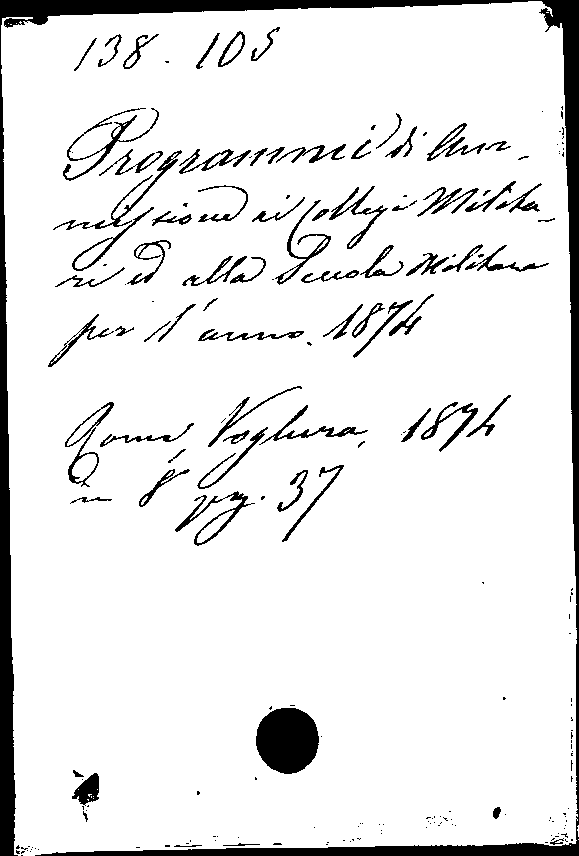 138. 105
Programmi di Am-
missione ai Collegi Milita-
ri ed alla Scuola Militare
per l'anno. 1874
Roma, Voghera, 1874
in 8° pag. 37